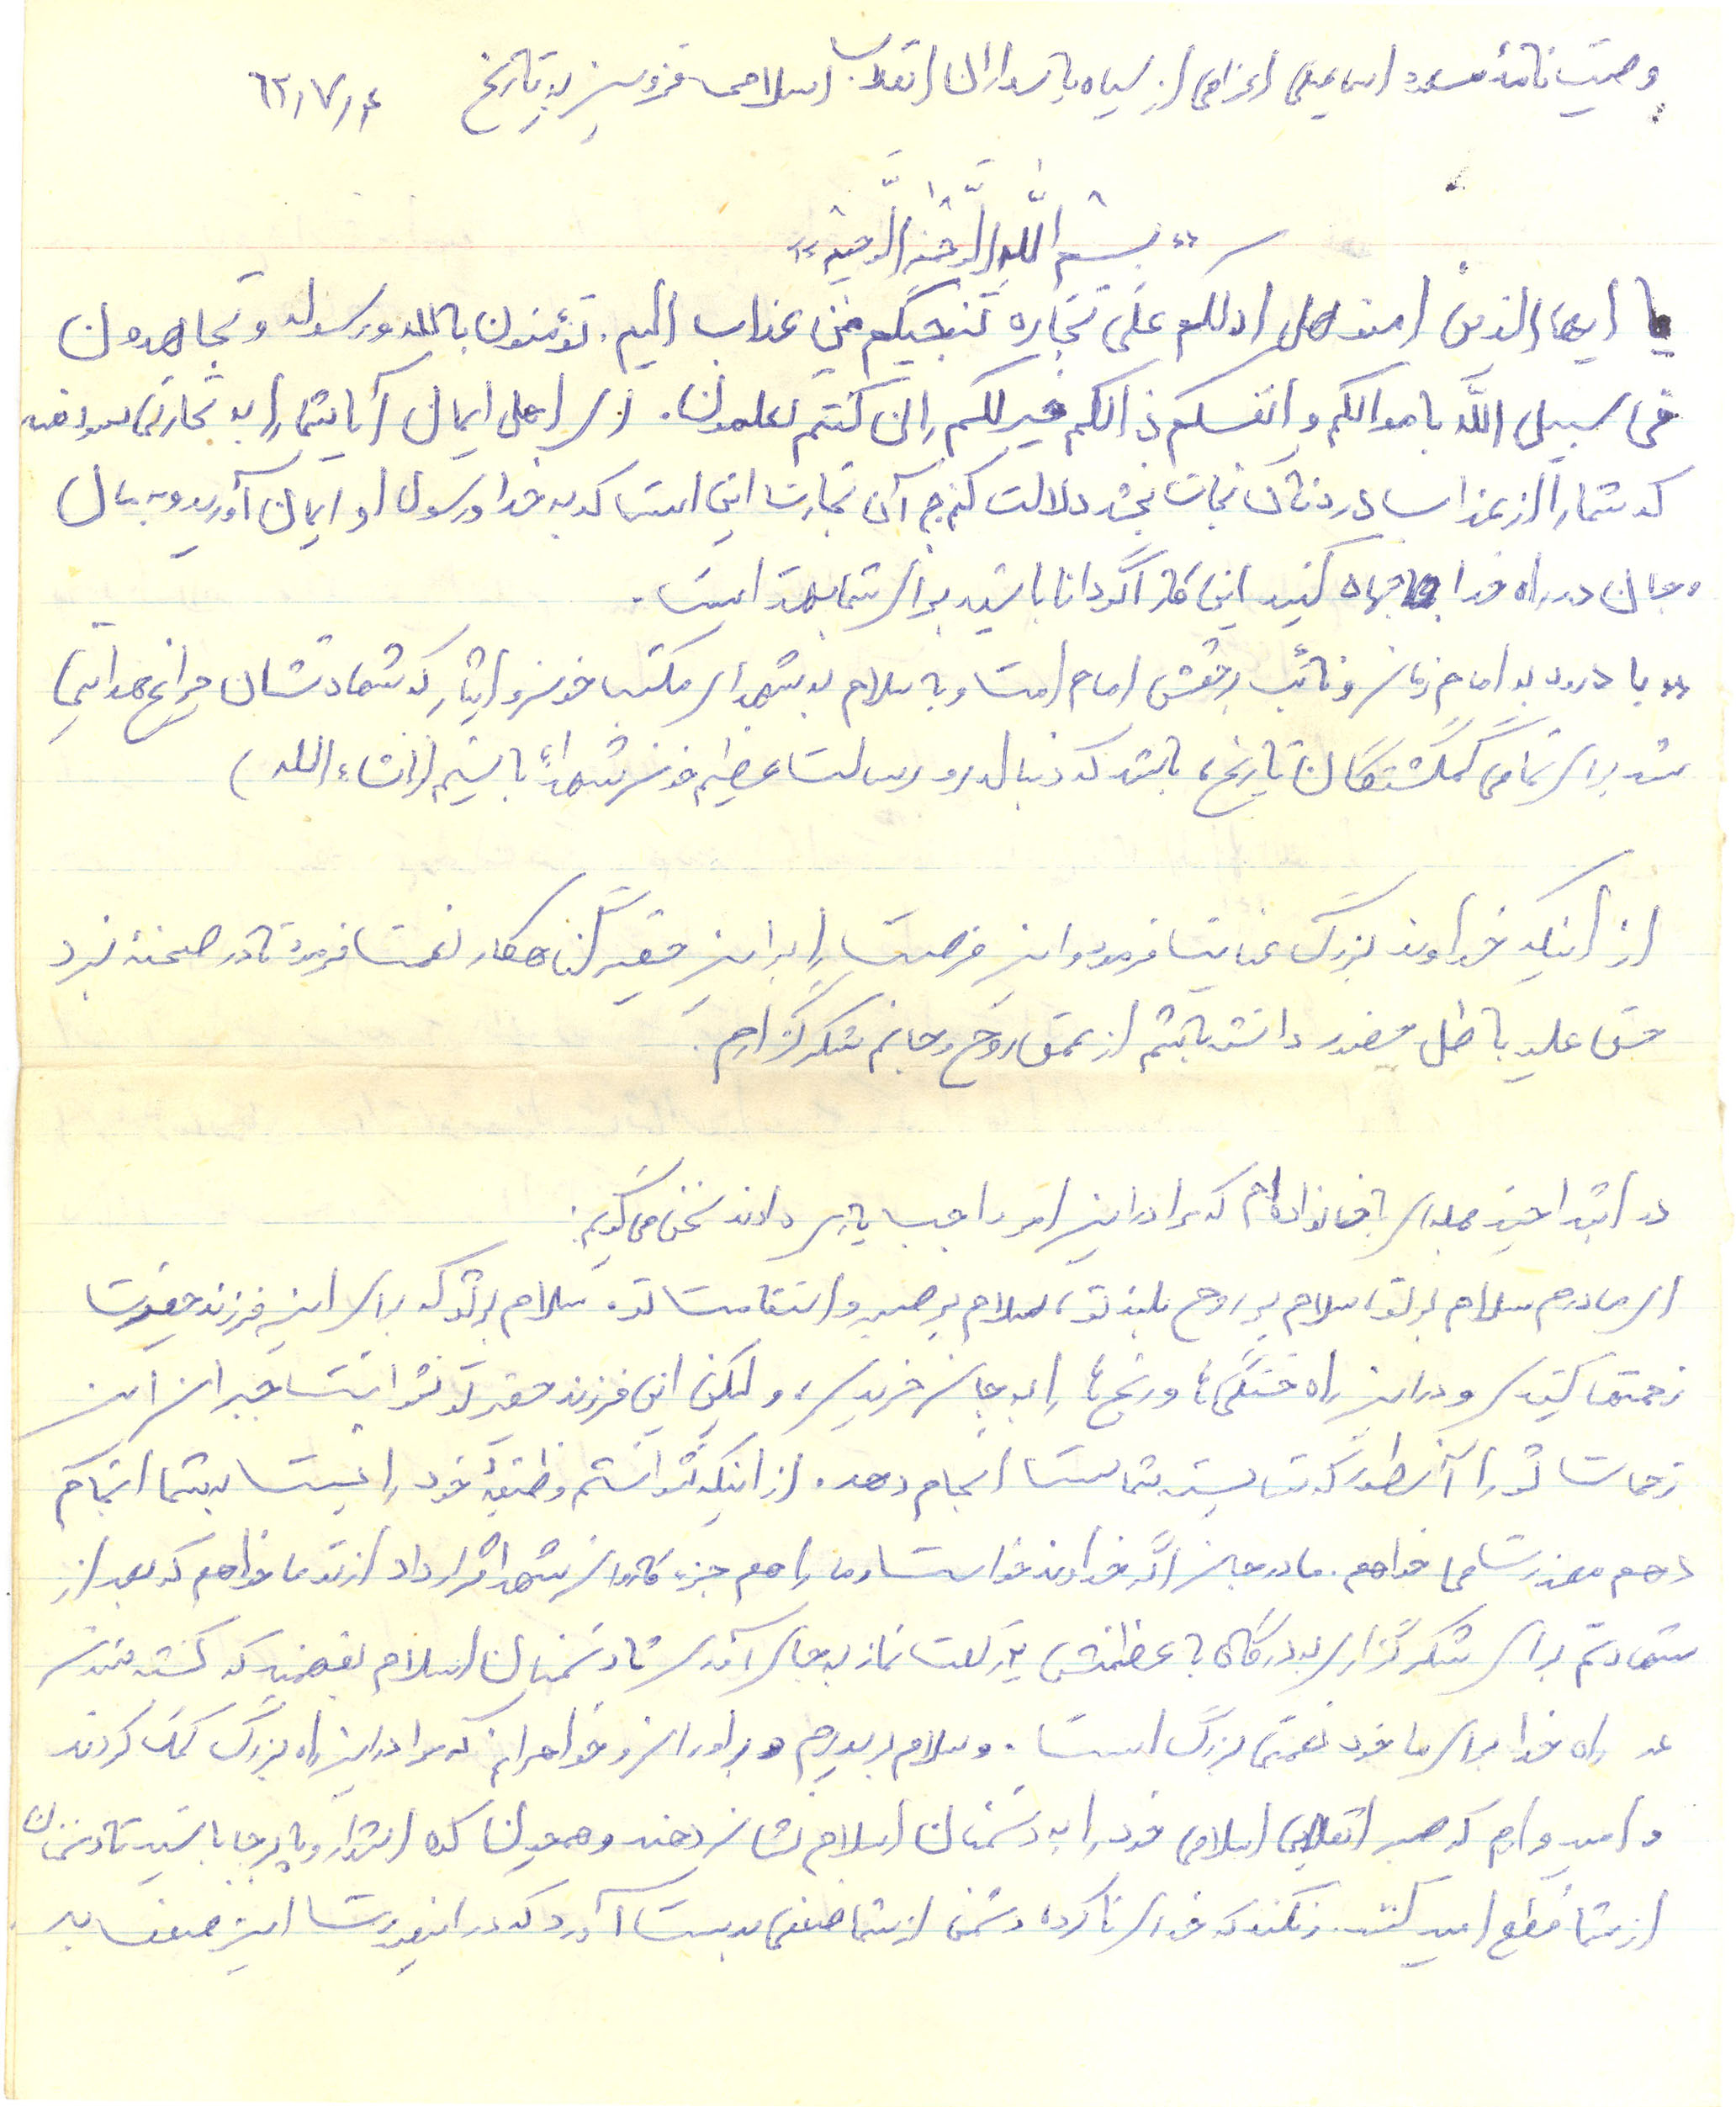 وصیت نامهٔ مسعود اسماعیلی اعزامی از سپاه پاسداران انقلاب اسلامی قزوین به تاریخ ۶۲/۷/۴
«بسم الله الرحمن الرحیم»
یا ایها الذین امنو هل ادلکم علی تجاره تنجیکم من عذاب الیم. تؤمنون بالله و رسوله و تجاهدون
فی سبیل الله باموالکم و انفسکم ذالکم خیر لکم ان کنتم تعلمون. ای اهل ایمان آیا شما را به تجارتی سودمند
که شما را از عذاب دردناک نجات بخشد دلالت کنم آن تجارت این است که به خدا و رسول او ایمان آورید و به مال
و جان در راه خدا جهاد کنید این کار اگر دانا باشید برای شما بهتر است.
«با درود به امام زمان و نائب برحقش امام امت و با سلام به شهدای مکتب خون و ایثار که شهادتشان چراغ هدایتی
شد برای تمامی گمگشتگان تاریخ، باشد که دنباله رو رسالت عظیم خون شهداء باشیم (انشاء الله)
از اینکه خداوند بزرگ عنایت فرمود و این فرصت را برای این حقیر گناهکار نعمت فرمود تا در صحنهٔ نبرد
حق علیه باطل حضور داشته باشم از عمق روح و جانم شکرگزارم.
در ابتدا چند جمله ای با خانواده ام که مرا در این امر واجب یاری دادند سخن می گویم:
ای مادرم سلام بر تو، سلام بر روح بلند تو، سلام بر صبر و استقامت تو. سلام بر تو که برای این فرزند حقیرت
زحمتها کشیدی و در این راه خستگی ها و رنج ها را به جان خریدی، و لیکن این فرزند حقیر تو نتوانست جبران این
زحمات تو را آنطور که شایسته شماست انجام دهد. از اینکه نتوانستم وظیفهٔ خود را نسبت به شما انجام
دهم معذرت می خواهم. مادر جان اگر خداوند خواست و ما را هم جزء کاروان شهدا قرار داد از تو می خواهم که بعد از
شهادتم برای شکرگزاری به درگاه با عظمتش یک رکعت نماز به جای آوری تا دشمنان اسلام بفهمند که کشته شدن
در راه خدا برای ما خود نعمتی بزرگ است. و سلام بر پدرم و برادران و خواهرانم که مرا در این راه بزرگ کمک کردند
و امیدوارم که صبر انقلابی اسلامی خود را به دشمنان اسلام نشان دهند و همچون کوه استوار و پا برجا باشید تا دشمنان
از شما قطع امید کنند. نکند که خدای ناکرده دشمن از شما ضعفی بدست آورد که در اینصورت این ضعف بر